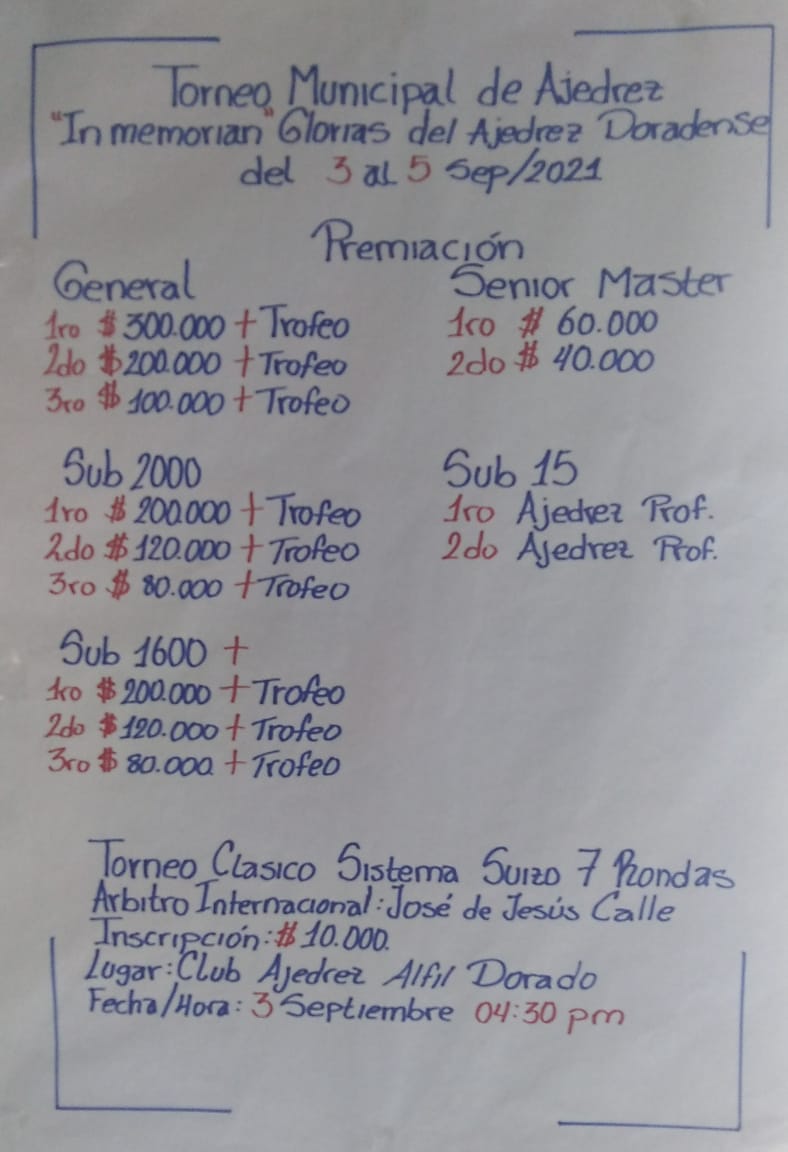 Torneo Municipal de Ajedrez
"In memorian" Glorias del Ajedrez Doradense
del 3 al 5 Sep/2021
Premiación
General
1ro $ 300.000 + Trofeo
2do $ 200.000 + Trofeo
3ro $ 100.000 + Trofeo
Senior Master
1ro $ 60.000
2do $ 40.000
Sub 2000
1ro $ 200.000 + Trofeo
2do $ 120.000 + Trofeo
3ro $ 80.000 + Trofeo
Sub 15
1ro Ajedrez Prof.
2do Ajedrez Prof.
Sub 1600 +
1ro $ 200.000 + Trofeo
2do $ 120.000 + Trofeo
3ro $ 80.000 + Trofeo
Torneo Clasico Sistema Suizo 7 Rondas
Arbitro Internacional: José de Jesús Calle
Inscripción: $ 10.000.
Lugar: Club Ajedrez Alfil Dorado
Fecha/Hora: 3 Septiembre 04:30 pm